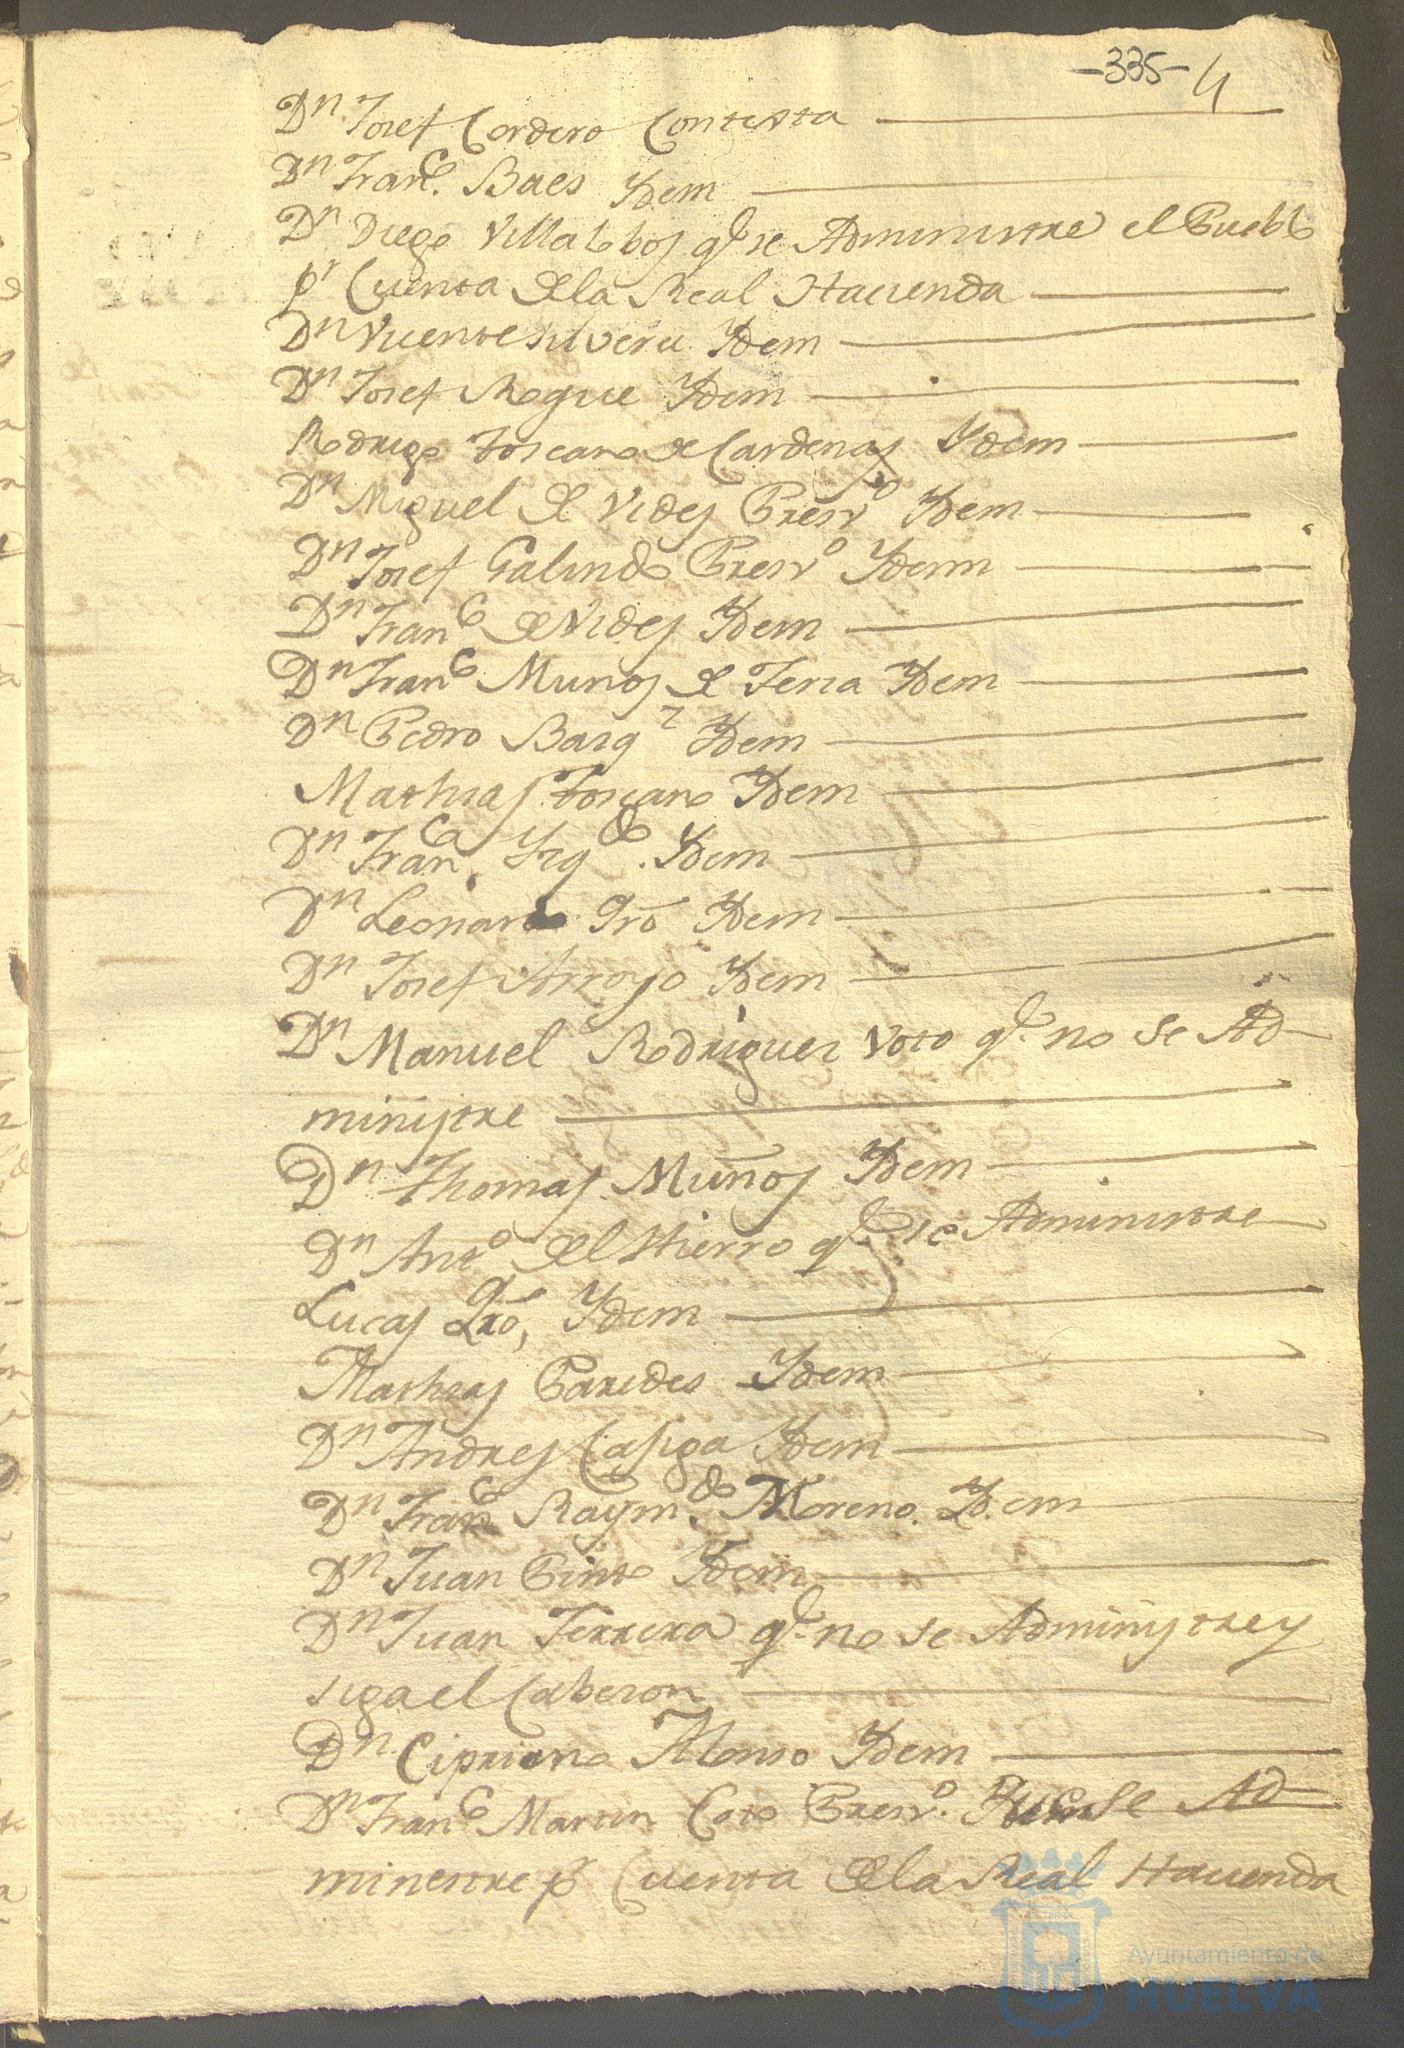 -335- 4
Dn Josef Cordero Contesta
Dn Franco. Baes Ydem
Dn Diego Villalobos qe. se Administre el Pueblo
pr Cuenta de la Real Hacienda
Dn Vicente silvera Ydem
Dn Josef Roque Ydem
Rodrigo toscano de Cardenas Ydem
Dn Miguel de Vides Presvo Ydem
Dn Josef Galindo Presvo Ydem
Dn Franco de Vides Ydem
Dn Franco Munos de Feria Ydem
Dn Pedro Barqz Ydem
Mathias toscano Ydem
Dn Franco. Yzqdo. Ydem
Dn Leonardo Qro Ydem
Dn Josef Arroyo Ydem
Dn Manuel Rodriguez Voto qe. no se Ad-
ministre
Dn Thomas Muños Ydem
Dn Anto del Hierro qe. se Administre
Lucas Qro, Ydem
Mathias Paredes Ydem
Dn Andres Casiga Ydem
Dn Franco Raymdo. Moreno. Ydem
Dn Juan Pinto Ydem
Dn Juan Ferrera qe. no se Administre y
siga el Cabezon
Dn Cipriano Alonso Ydem
Dn Franco Martin Coto Presvo. se Ad-
minestre pr Cuenta de la Real Hacienda
Ayuntamiento de
HUELVA